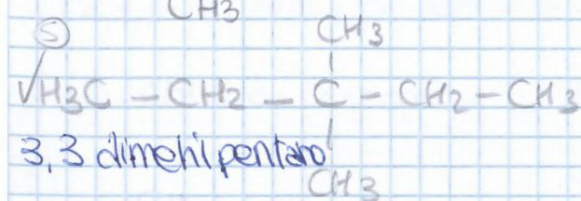 CH3
5
CH3
√H3C - CH2 - C - CH2 - CH3
3,3 dimehil pentano
CH3